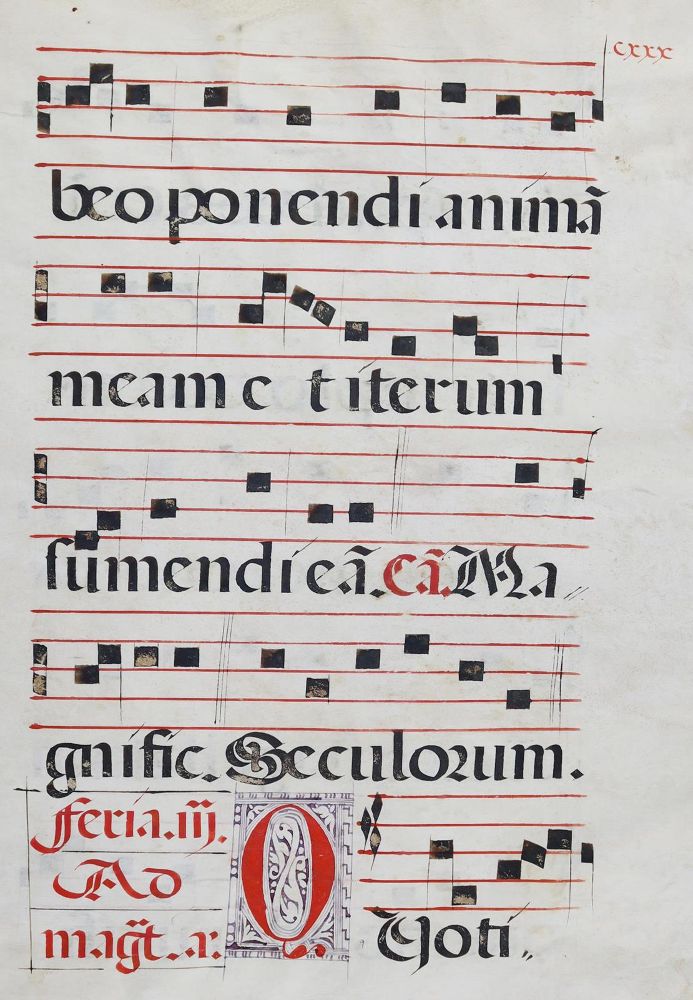 cxxx
beo ponendi animã
meam et iterum
ſumendi eã. Cã. Ma〃
gnific. Seculorum.
feria.iij.
Ad
mag̃t. a:
QUoti〃